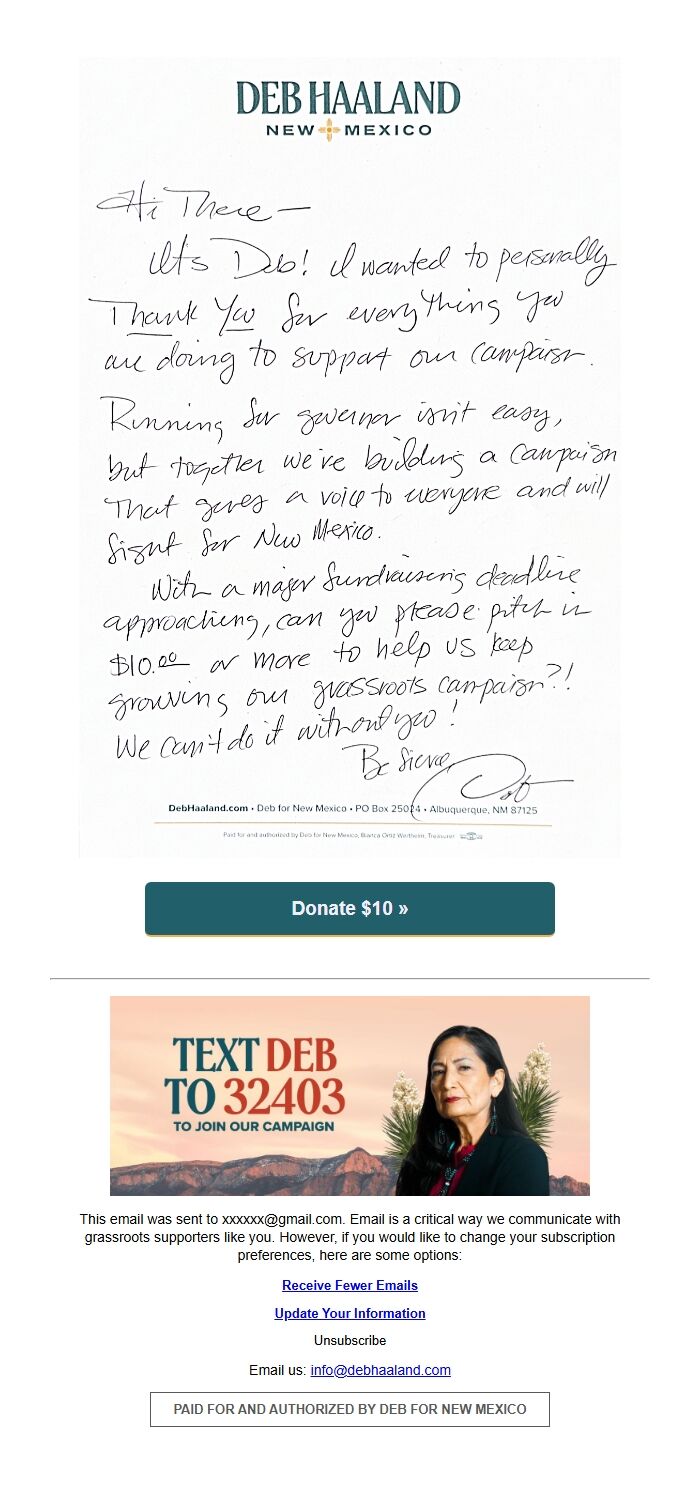 DEB HAALAND
NEW MEXICO
Hi There —
It's Deb! I wanted to personally
Thank You for everything you
are doing to support our campaign.
Running for governor isn't easy,
but together we're building a campaign
that gives a voice to everyone and will
fight for New Mexico.
With a major fundraising deadline
approaching, can you please pitch in
$10.00 or more to help us keep
growing our grassroots campaign?!
We can't do it without you!
Be fierce,
Deb
DebHaaland.com • Deb for New Mexico • PO Box 25024 • Albuquerque, NM 87125
Paid for and authorized by Deb for New Mexico, Bianca Ortiz Wertheim, Treasurer
Donate $10 »
TEXT DEB
TO 32403
TO JOIN OUR CAMPAIGN
This email was sent to xxxxxx@gmail.com. Email is a critical way we communicate with
grassroots supporters like you. However, if you would like to change your subscription
preferences, here are some options:
Receive Fewer Emails
Update Your Information
Unsubscribe
Email us: info@debhaaland.com
PAID FOR AND AUTHORIZED BY DEB FOR NEW MEXICO